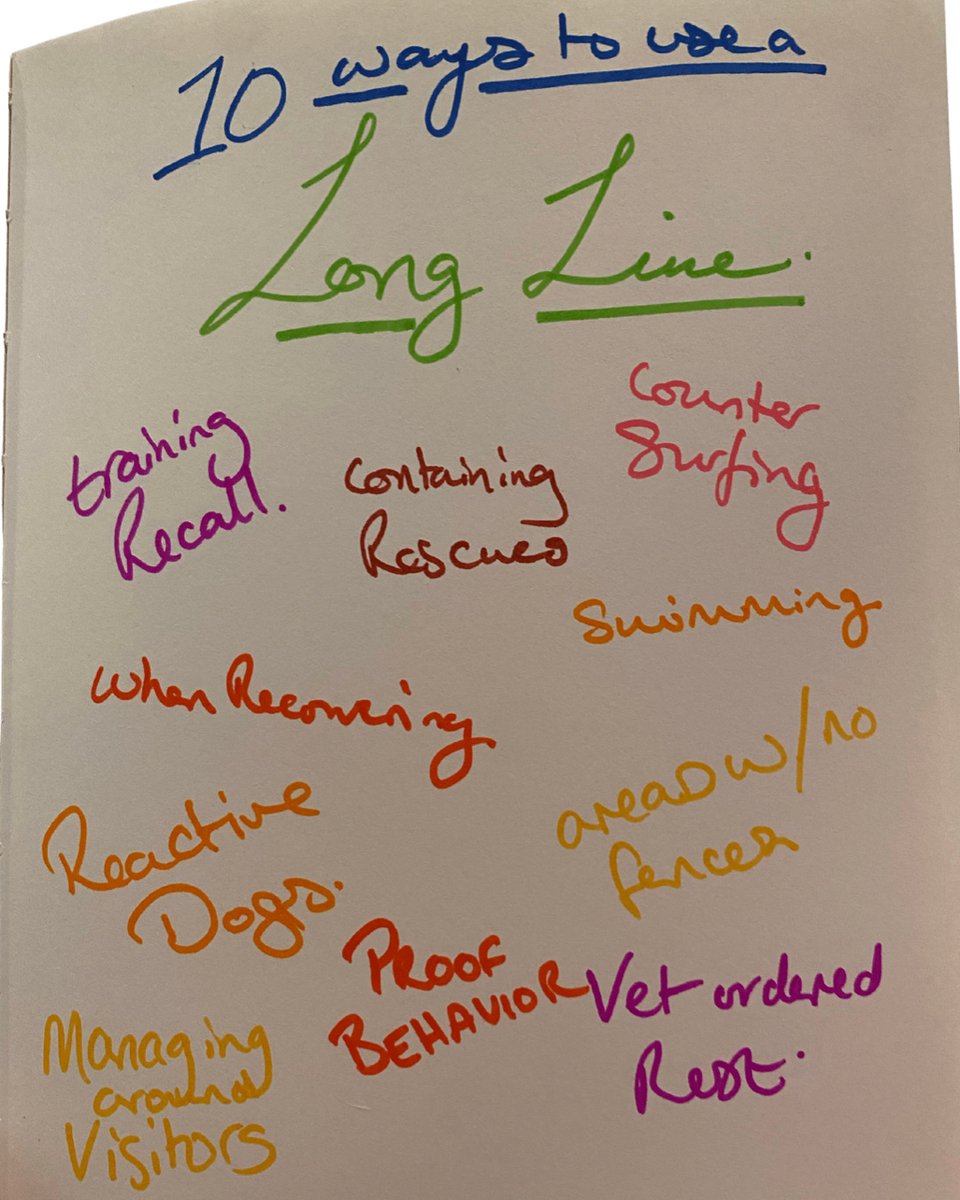 10 ways to use a
Long Line.
training
Recall.
containing
Rescues
Counter
Surfing
Swimming
when Recovering
Reactive
Dogs.
areas w/no
fences
PROOF
BEHAVIOR
Vet ordered
Rest.
Managing
around
Visitors